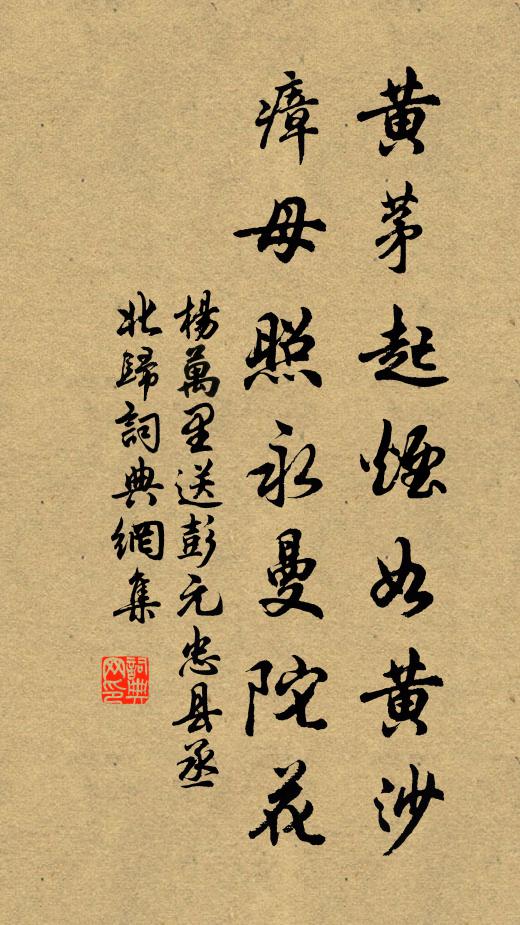 黄茅起煙如黄沙
瘴母照永曼陀花
楊萬里送彭元忠县丞
北歸詞典網集
詞典网印